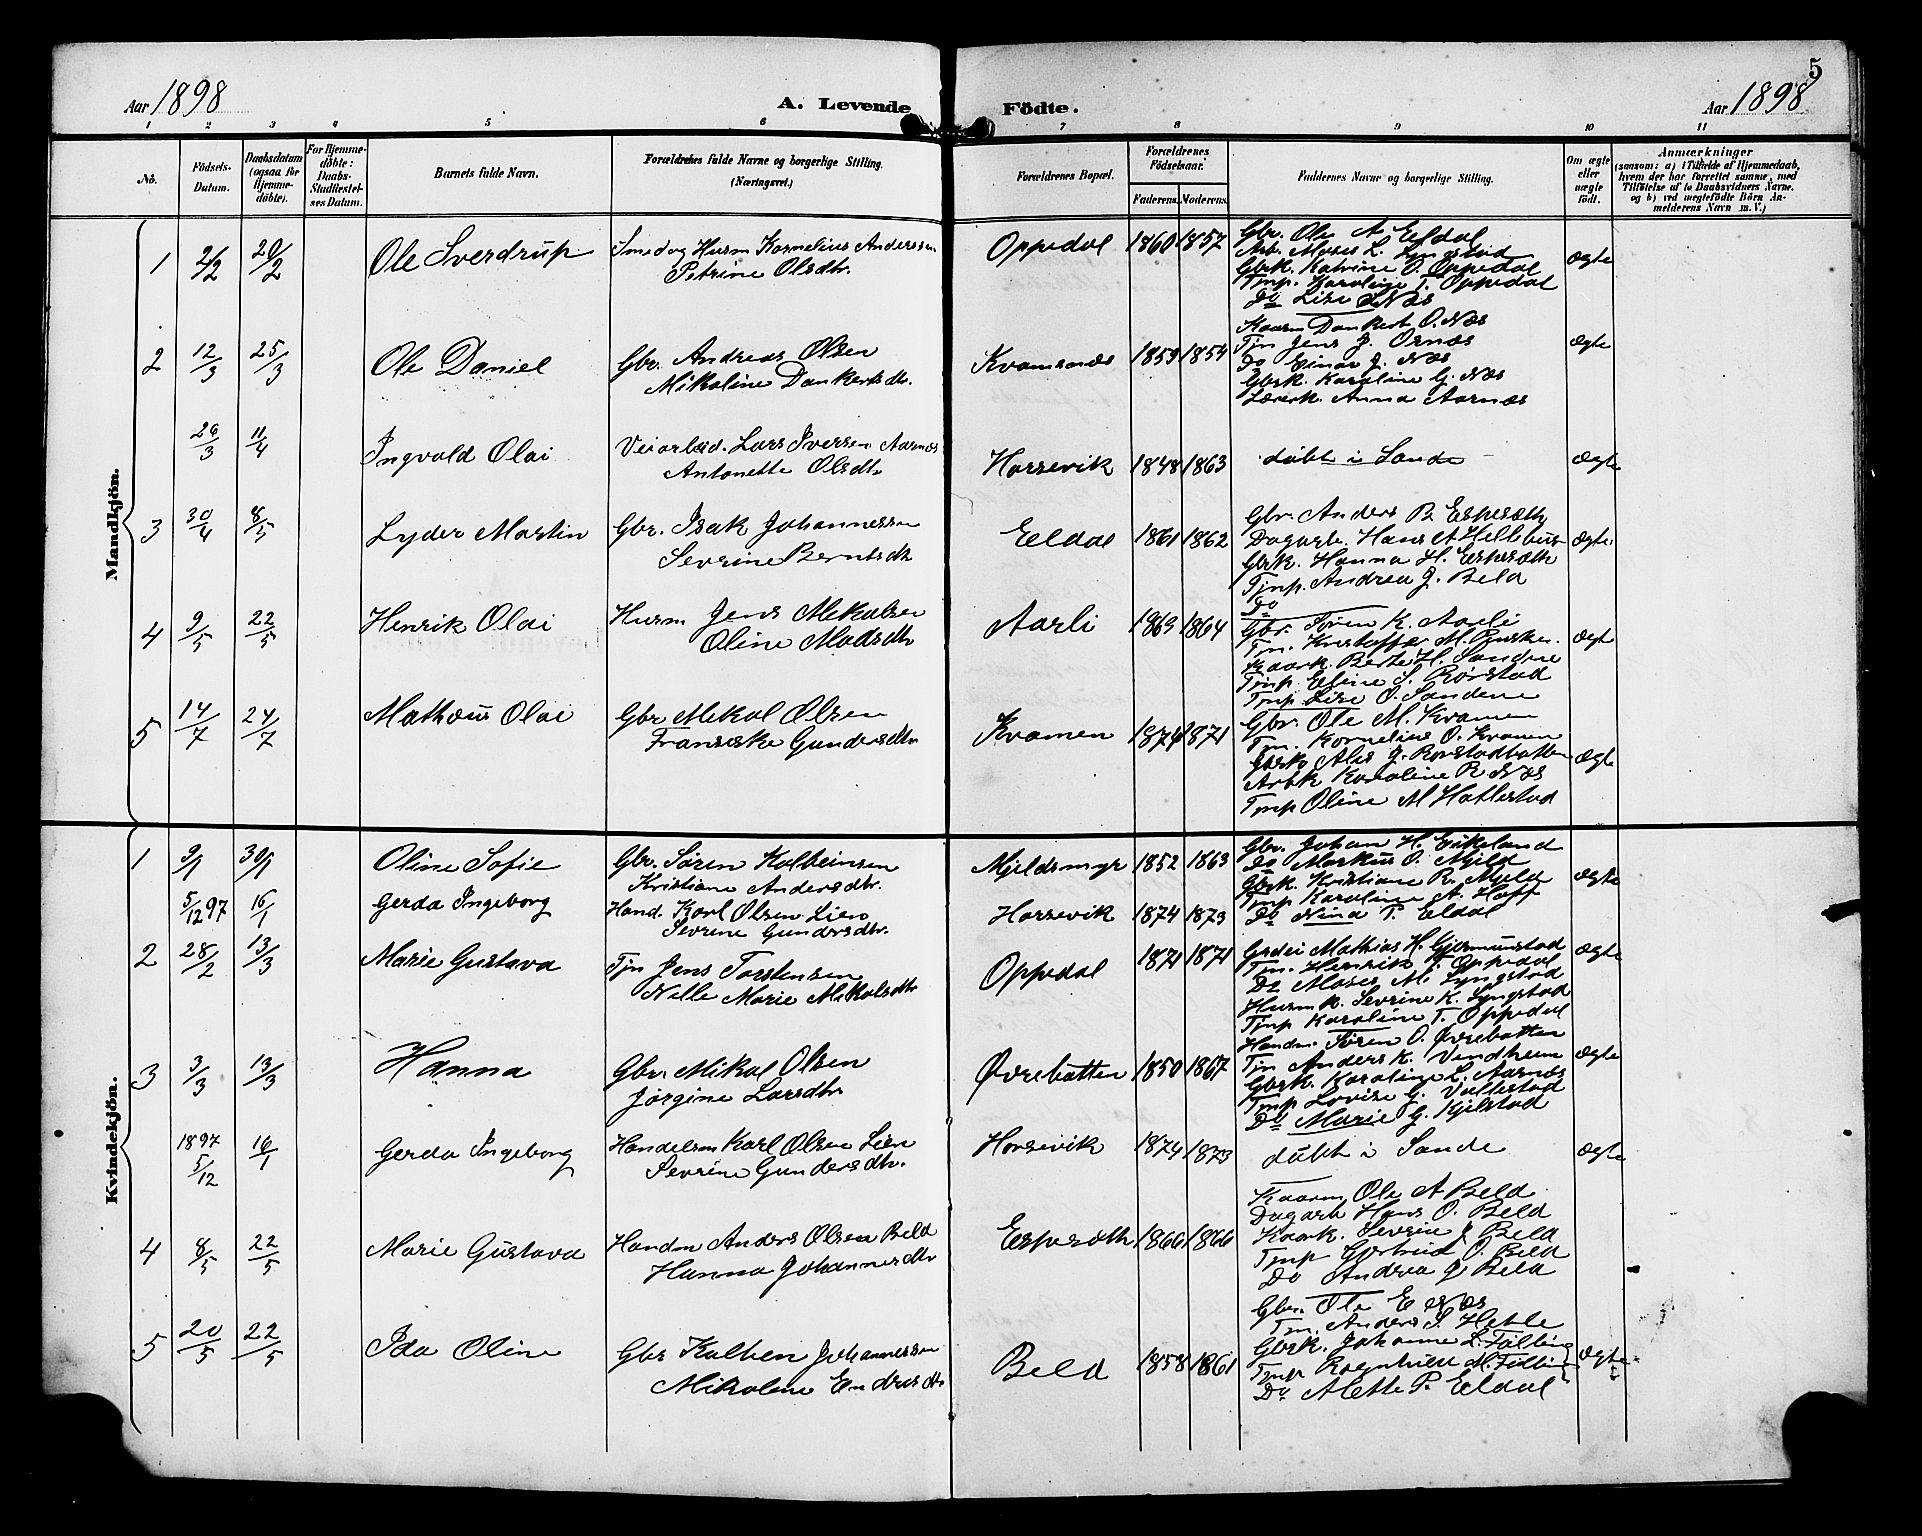 5
Aar 1898 A. Levende Födte. Aar 1898
1 2 3 4 5 6 7 8 9 10 11
No.
Födsels-Datum.
Daabsdatum (ogsaa for Hjemmedöbte).
For Hjemmedöbte: Daabs-Stadfestelses Datum.
Barnets fulde Navn.
Forældrenes fulde Navne og borgerlige Stilling.
(Næringsvei.)
Forældrenes Bopæl.
Forældrenes Födselsaar.
Faderens. Moderens.
Faddernes Navne og borgerlige Stilling.
Om ægte eller uægte födt.
Anmærkninger
(saasom: a) i Tilfælde af Hjemmedaab, hvem der har forrettet samme, med Tilföielse af to Daabsvidners Navne, og b) ved uægtefödte Börn Anmelderens Navn m. V.)
Mandkjön.
1 2/2 20/2 Ole Sverdrup Smed og Husm Kornelius Anderssen
Petrine Olsdtr.
Oppedal 1860 1857 Gbr. Ole A Eldal
Arb. Moses L. Lyngstad
Gbrk. Katrine O. Oppedal
Tjnp. Karoline T. Oppedal
Do Lise Næs
ægte
2 12/3 25/3 Ole Daniel Gbr. Andreas Olsen
Mikaline Dankertsdtr.
Kvamsnæs 1859 1854 Kaarm Dankert O. Næs
Tjn Jens J. Osnæs
Do Einar J. Næs
Gbrk. Karoline G. Næs
Lærerk. Anna Aarnæs
ægte
26/3 11/4 Ingvald Olai Veiarbeid. Lars Iversen Aarnæs
Antonette Olsdtr
Horsevik 1848 1863 döbt i Sande ægte
3 30/4 8/5 Lyder Martin Gbr. Isak Johannessen
Sevrine Berntsdtr
Eeldal 1861 1862 Gbr. Anders B. Espesæth
Dagarb. Hans A Hellebus
Gbrk. Hanna H. Espesæth
Tjnp. Andrea J. Beld
Do
ægte
4 9/5 22/5 Henrik Olai Husm Jens Mikalsen
Oline Madsdtr
Aarli 1863 1864 Gbr. Sören K. Aarli
Tjn. Kristoffer M.
Kaark. Berte H. Sandene
Tjnp Eline S. Rörstad
Tjnp Lise O. Sandene
ægte
5 14/7 24/7 Mathæus Olai Gbr Mikal Olsen
Franseske Gundersdtr
Kvamen 1874 1871 Gbr. Ole M. Kvamen
Tjn. Kornelius O. Kvamen
Gbrk Alis J. Rörstadbotten
Arbk Karoline R Næs
Tjnp Oline M Hatlestad
ægte
Kvindekjön.
1 9/1 30/1 Oline Sofie Gbr. Sören Kolbeinsen
Kristiane Andersdtr.
Mjeldsmyr 1852 1863 Gbr. Johan H. Eikeland
Do Markus O. Mjeld
Gbrk. Kristiane R. Mjeld
Tjnp Karoline A. Hoff
Do Nina P. Eldal
ægte
5/12 97 16/1 Gerda Ingeborg Hand. Karl Olsen Lien
Sevrine Gundersdtr.
Horsevik 1874 1873
2 28/2 13/3 Marie Gustava Tjn Jens Torstensen
Nille Marie Mikalsdtr
Oppedal 1871 1871 Grdei Mathias H. Gjermundstad
Tjn. Henrik T. Oppedal
Do Moses M. Lyngstad
Husmk. Sevrine K. Lyngstad
Tjnp Karoline T. Oppedal
ægte
3 3/3 13/3 Hanna Gbr. Mikal Olsen
Jörgine Larsdtr
Övrebotten 1850 1867 Handm. Sören O. Övrebotten
Tjn Anders K. Vendheim
Gbrk. Karoline L. Aarnæs
Tjnp Lovise G. Vallestad
Do Marie G. Kjelstad
ægte
1897 5/12 16/1 Gerda Ingeborg Handelsm Karl Olsen Lien
Sevrine Gundersdtr.
Horsevik 1874 1873 döbt i Sande ægte
4 8/5 22/5 Marie Gustava Handm Anders Olsen Beld
Hanna Johannesdtr
Espesæth 1866 1866 Kaarm Ole A Beld
Dagarb Hans O. Beld
Kaark. Sevrine J Beld
Tjnp Gjertrud O. Beld
Do Andrea J Beld
5 20/5 22/5 Ida Oline Gbr Kolben Johannessen
Mikaline Endresdtr
Beld 1858 1861 Gbr. Ole E Næs
Tjn. Anders S. Hetle
Gbrk. Johanne L. Fölling
Tjnp Ragnhild M. Fölling
Do Alette P. Eldal
ægte